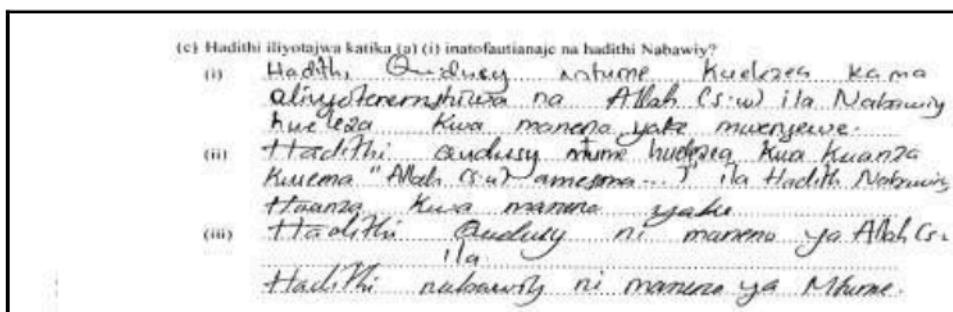 (c) Hadithi iliyotajwa katika (a) (i) inatofautianaje na hadithi Nabawiy?
(i) Hadithi Qudusy mtume Kuelezea kama
aliyoteremshiwa na Allah (s.w) ila Nabawiy
hueleza Kwa maneno yake mwenyewe.
(ii) Hadithi Qudusy mtume huelezea Kwa Kuanza
Kusema "Allah (s.w) amesma...?" ila Hadith Nabawiy
Huanza Kwa maneno yake
(iii) Hadithi Qudusy ni maneno ya Allah (s.
ila
Hadithi nabawiy ni maneno ya Mtume.